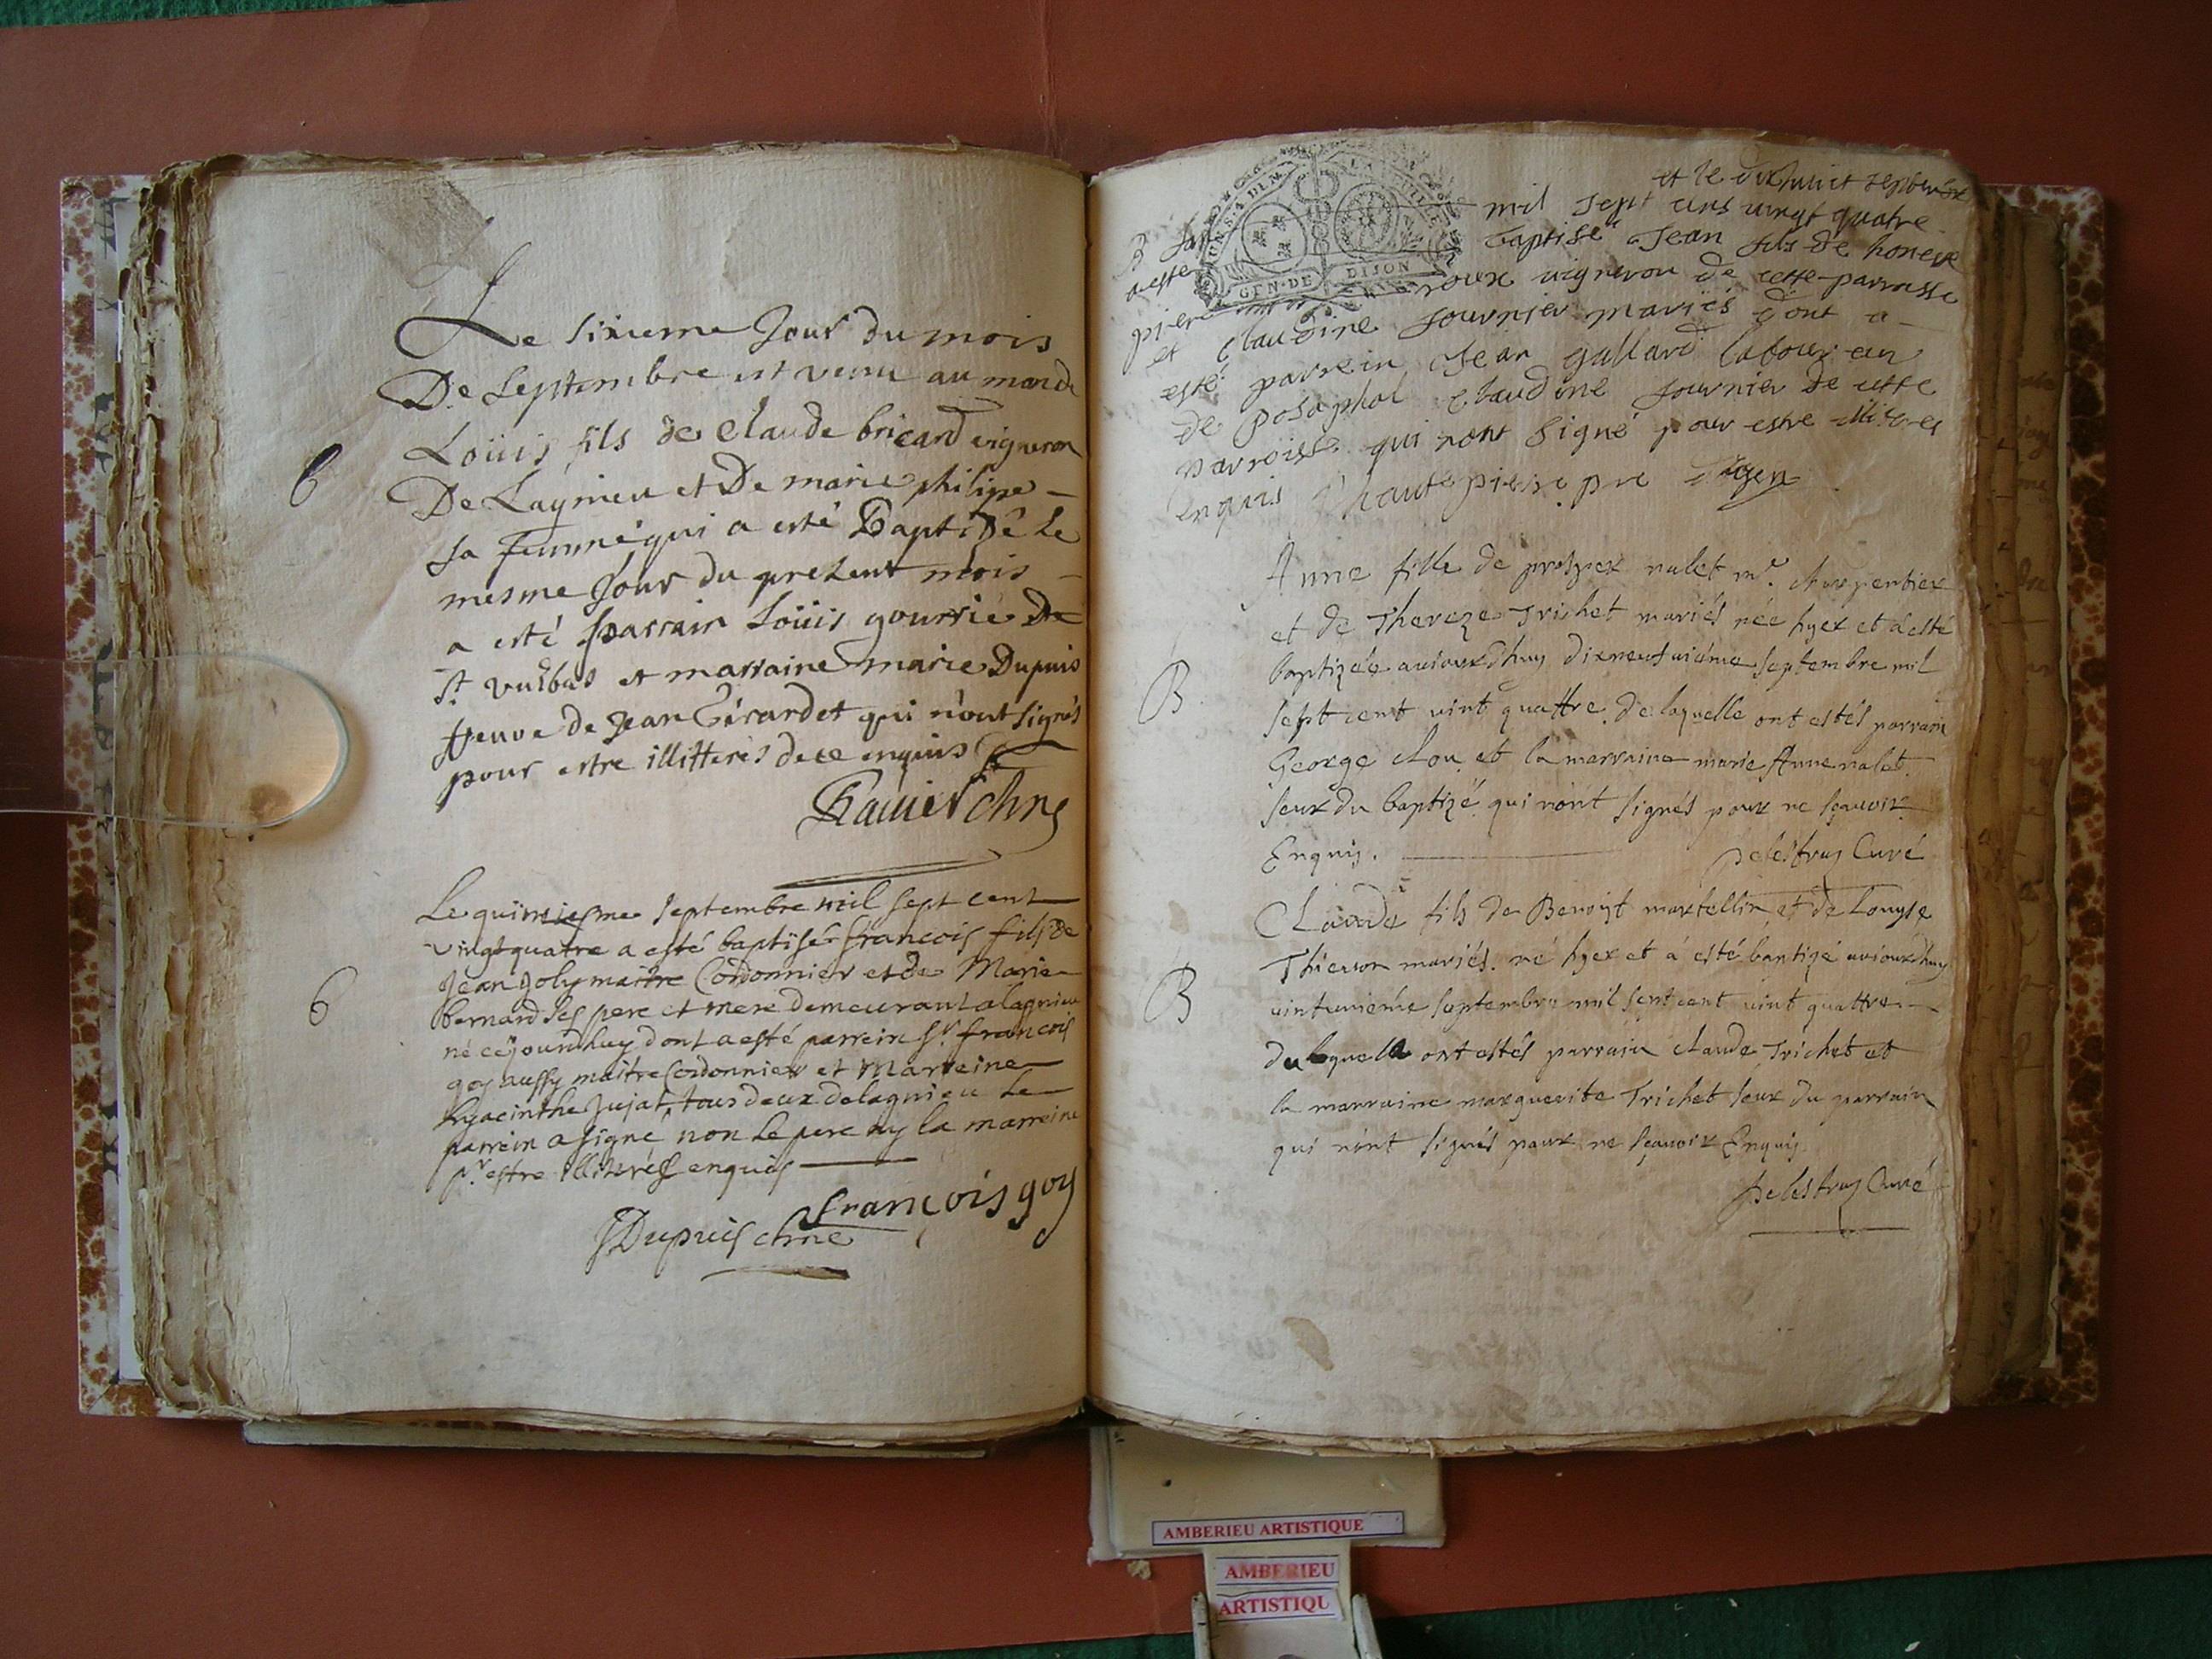 Le sixieme Jour du mois
De Septembre est venu au monde
Loüis fils de Claude bricard vigneron
B
De Lagnieu et De marie philippe
sa femme qui a esté Baptisé Le
mesme Jour du present mois
a esté parrain Loüis gourrie De
St vulbas et marraine marie Dupuis
veuve de Jean Girardet qui n'ont signés
pour estre illitterés de ce enquis
Ravier chne
Le quinziesme septembre mil sept cent
vingt quatre a esté baptisé francois fils de
Jean Joly maitre Cordonnier et de Marie
B
bernard ses pere et mere demeurant a lagnieu
né cejourdhuy dont a esté parrein Sr. francois
goy aussy maitre Cordonnier et Marreine
hyacinthe Jujat, tous deux de lagnieu Le
parrein a signé non Le pere ny la marreine
pr. estre illiterés enquis
francois goy
Dupuis chne
et le dixhuict septembre
mil sept cens vingt quatre
B
a esté baptisé Jean fils de honeste
GEN·DE DIJON
roux vigneron de cette parroisse
et Claudine fournier mariés dont a
esté parrein Jean gallard laboureur
de posaphol Claudine fournier de cette
parroisse qui nont signé pour estre illiteres
enquis hautepierre pre
Anne fille de prosper nalet me. charpentier
et de Thereze Trichet mariés née hyer et a esté
baptizée auiourdhuy dixneufuiéme septembre mil
B
sept cent vint quattre de laquelle ont estés parrain
George clou et la marraine marie Anne nalet
seur du baptizé qui n'ont signés pour ne sçauoir
Enquis. pelestrus Curé
Claude fils de Benoyt martellin et de Louyse
Thierson mariés. né hyer et á esté baptizé auiourdhuy
B
vintunieme septembre mil sept cent vint quattre
du laquelle ont estés parrain claude Trichet et
la marraine marguerite Trichet seur du parrain
qui n'ont signés pour ne sçauoir Enquis
pelestrus Curé
AMBERIEU ARTISTIQUE
AMBERIEU
ARTISTIQU